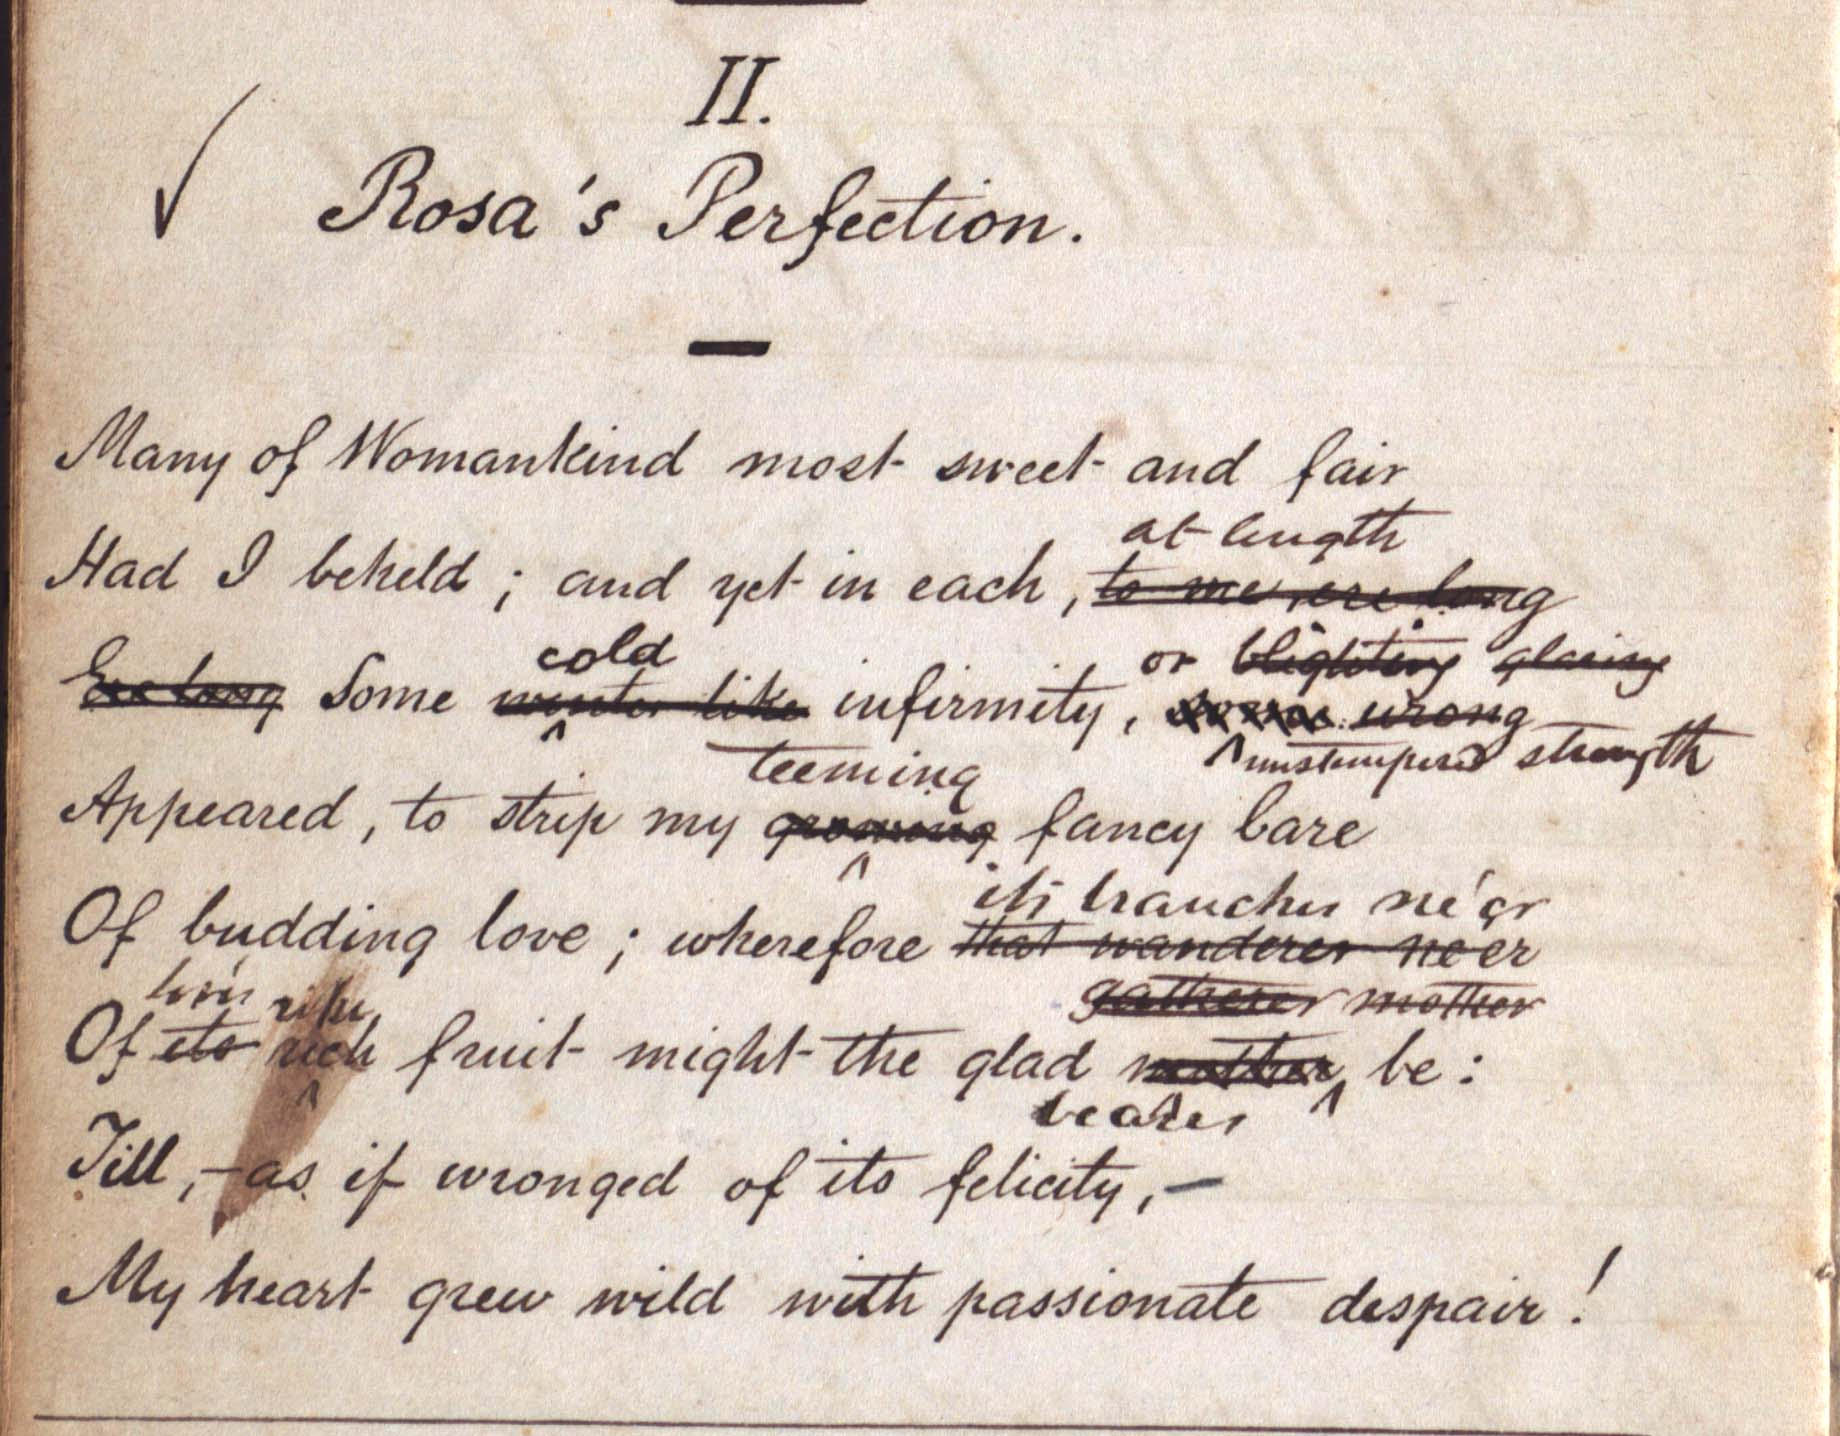 II.
Rosa's Perfection.
Many of Womankind most sweet and fair
at length
Had I beheld ; and yet in each , to me, ere long
cold or blighting glaring
Ere long Some winter like infirmity , wrong
teeming strength
Appeared , to strip my growing fancy bare
its branches ne'er
Of budding love ; wherefore that wanderer ne'er
ripe gatherer mother
Of its rich fruit might the glad mother be :
bearer
Till , – as if wronged of its felicity , –
My heart grew wild with passionate despair !